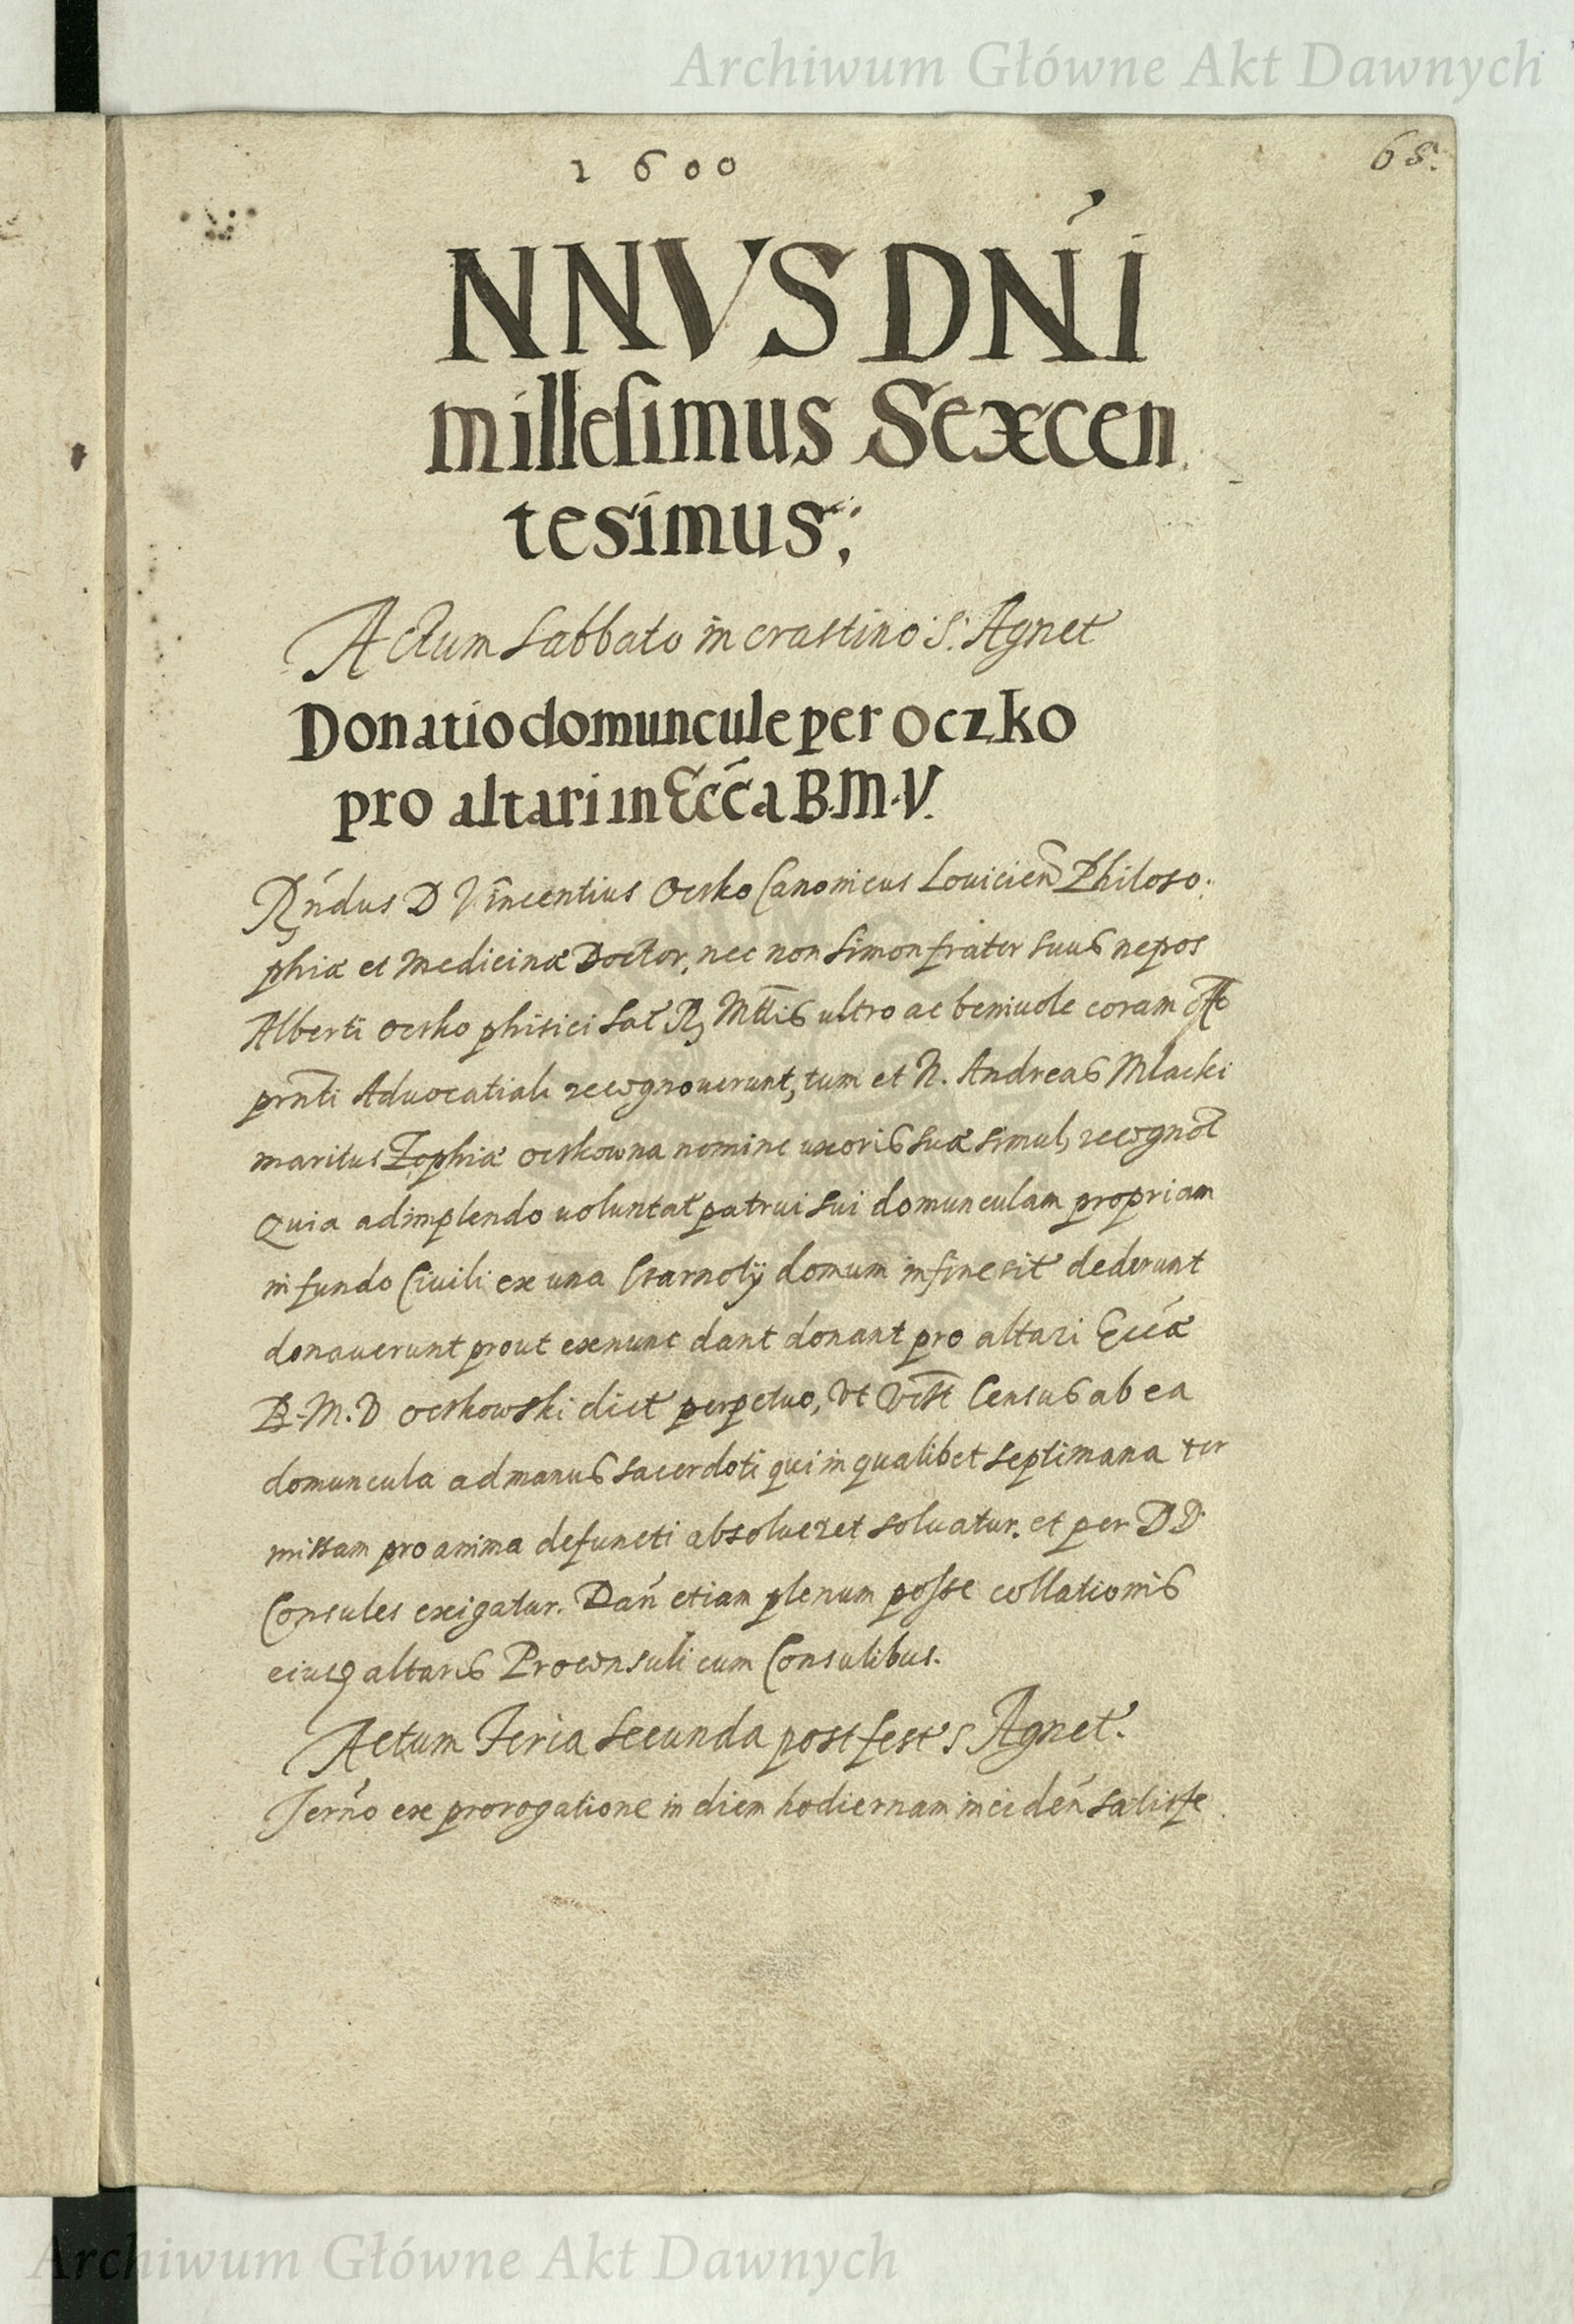 Archiwum Główne Akt Dawnych
1600
68.
NNVS DŃI
millesimus Sexcen
tesimus;
Actum Sabbato in crastino S: Agnet
Donatio domuncule per Oczko
pro altari in Ecća B.M.V.
Rńdus D Vincentius Oczko Canonicus Louicień Philoso.
phiæ et Medicinæ Doctor, nec non Simon frater suus nepos
Alberti Oczko phisici Sac R Mttis ultro ac beniuole coram
prnti Advocatiali recognouerunt, tum et N. Andreas Mlacki
maritus Zophiæ Oczkowna nomine uxoris suæ simul, recognot
Quia adimplendo voluntat patrui sui domunculam propriam
in fundo Ciuili ex una Czarnoty domum in fine sit dederunt
donauerunt prout exnunc dant donant pro altari Eccæ
B.M.V Oczkowski dict perpetuo, Vt Census ab ea
domuncula ad manus sacerdoti qui in qualibet septimana ter
missam pro anima defuncti absolueret soluatur, et per DD
Consules exigatur. Dań etiam plenum posse collationis
eiusq altaris Proconsuli cum Consulibus.
Actum Feria Secunda post fest S Agnet.
Termo ex prorogatione in diem hodiernam inciden satisfe
Archiwum Główne Akt Dawnych